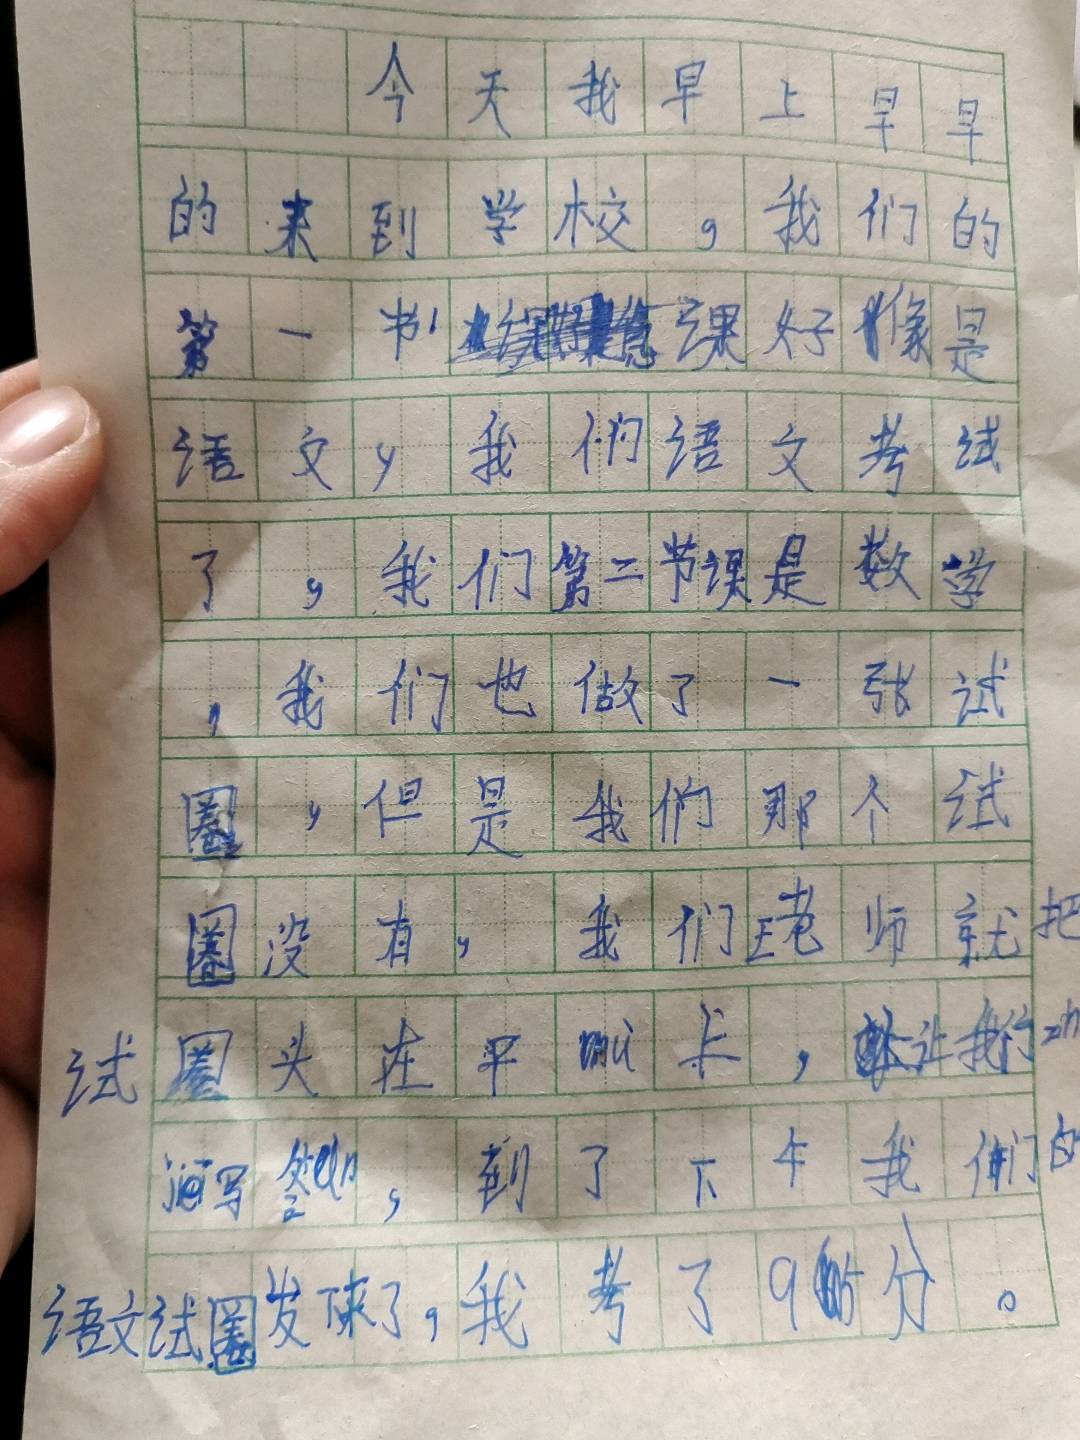 今天我早上早早
的来到学校，我们的
第一节课好像是
语文，我们语文考试
了，我们第二节课是数学
，我们也做了一张试
圈，但是我们那个试
圈没有，我们王老师就把
试圈头在平 上，让我们zh
jie写答，到了下午我们的
语文试圈发下来了，我考了9分。